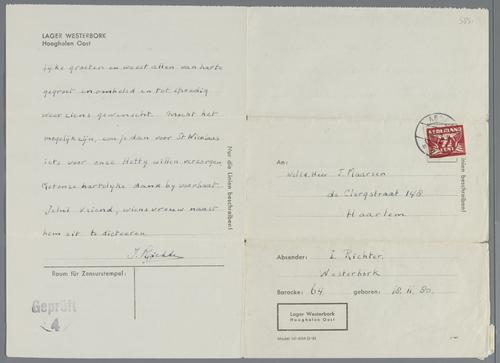 LAGER WESTERBORK
Hooghalen Oost
lijke groeten en weest allen van harte
gegroet en omhelsd en tot spoedig
weerziens gewenscht. Mocht het
mogelijk zijn, om je dan voor St Nicolaas
iets voor onze Hetty willen verzorgen
Met onze hartelijke dank bij voorbaat
vriend, wiens vrouw naast
hem zit te dicteeren
Nur die Linien beschreiben!
Raum für Zensurstempel:
Geprüft
4
585
NEDERLAND
7½
CENT
Linien beschreiben!
An:
WelEd. Heer I. Maarsen
de Clerqstraat 148
Haarlem
Absender: I. Richter
Westerbork
Baracke: 64 geboren: 18. II. 80.
Lager Westerbork
Hooghalen Oost